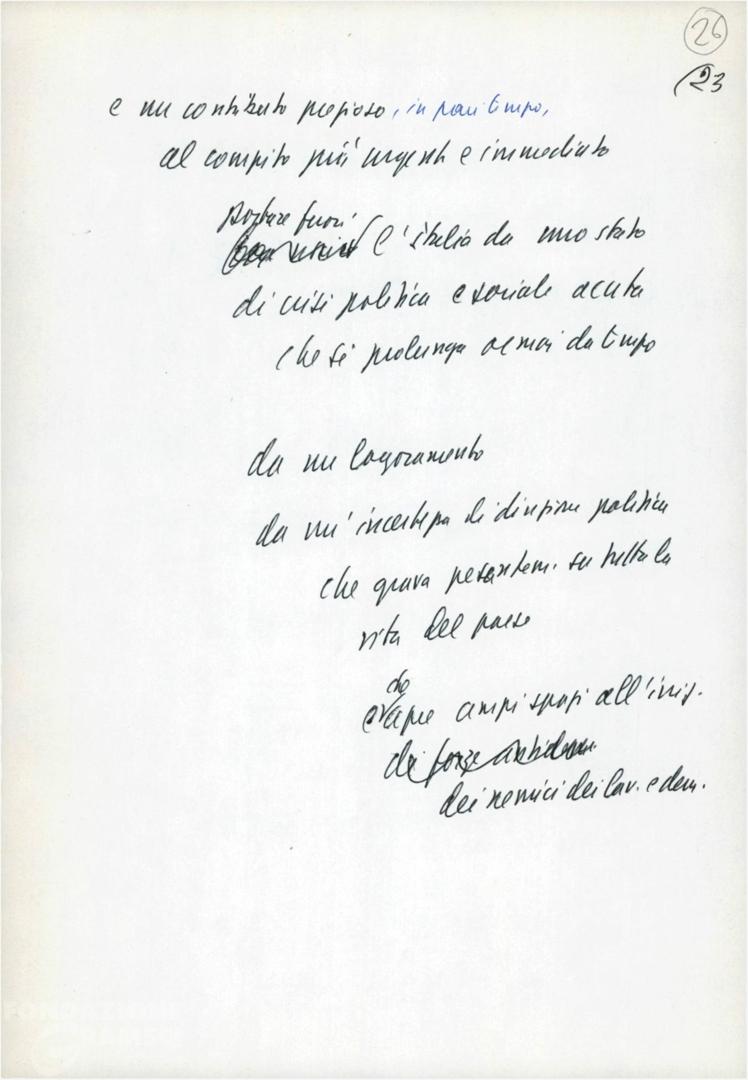 26
23
e un contributo prezioso, in pari tempo,
al compito più urgente e immediato
portare fuori
l'Italia da uno stato
di crisi politica e sociale acuta
che si prolunga ormai da tempo
da un logoramento
da un'incertezza di direzione politica
che grava pesantem. su tutta la
vita del paese
che
e apre ampi spazi all'iniz.
di forze antidem.
dei nemici dei lav. e dem.
FONDAZIONE
GRAMSCI